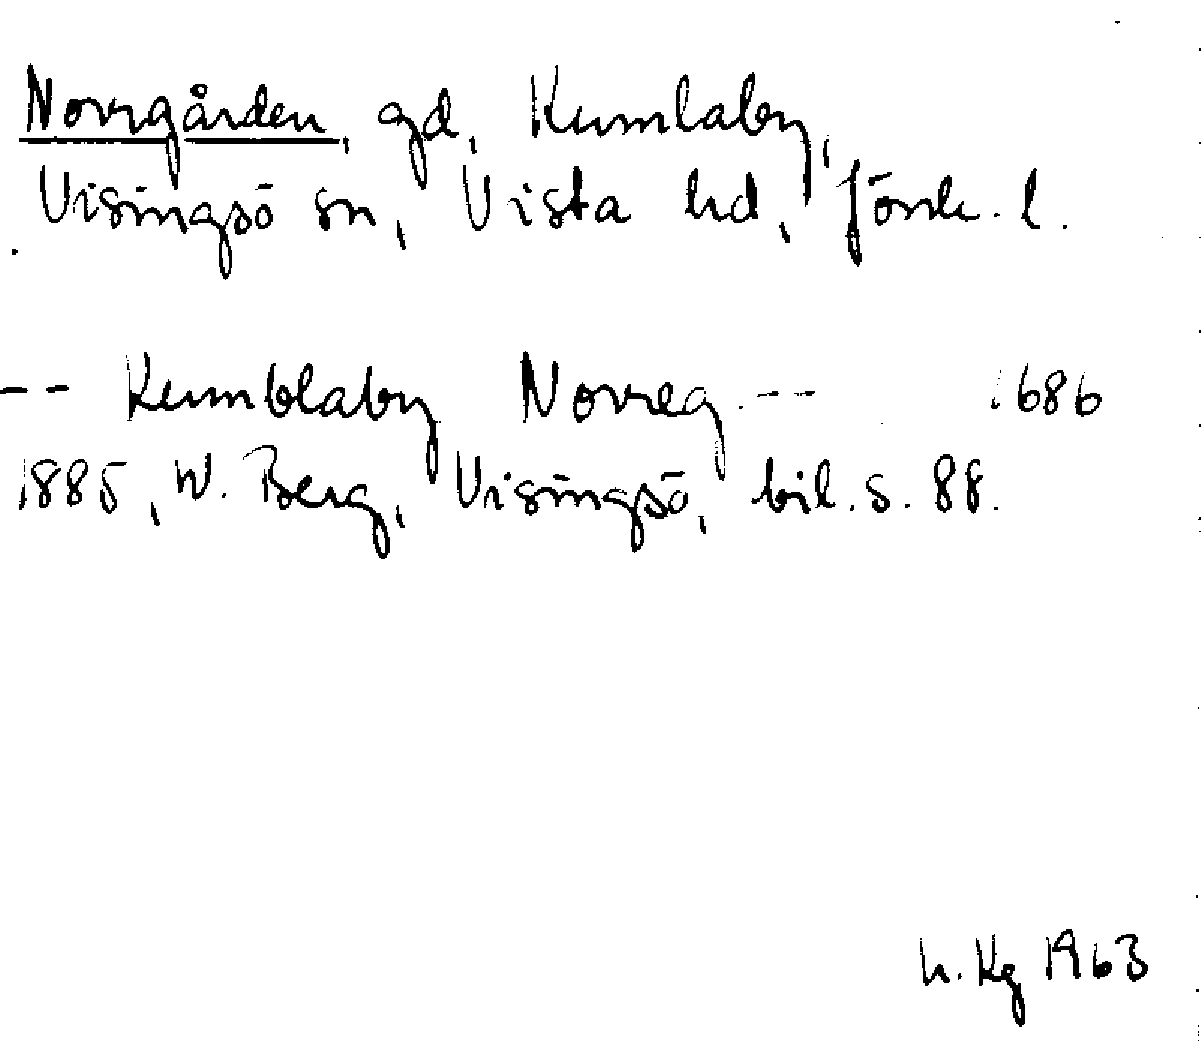 Norrgården, gd, Kumlaby,
Visingsö sn, Vista hd, Jönk. l.
-- Kumblaby Norreg. -- 1686
1885, W. Berg, Visingsö, bil. s. 88.
h. Kg 1963